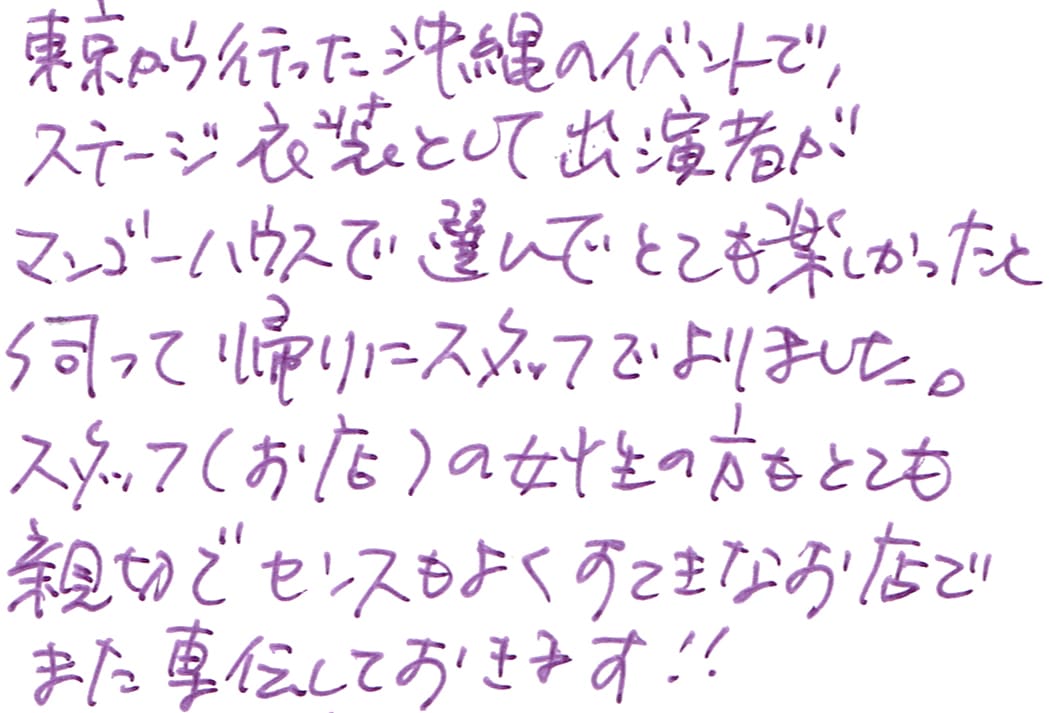 東京から行った沖縄のイベントで、
ステージ衣装として出演者が
マンゴーハウスで選んでとても楽しかったと
伺って帰りにスタッフでよりました。
スタッフ(お店)の女性の方もとても
親切でセンスもよくすてきなお店で
また宣伝しておきます!!